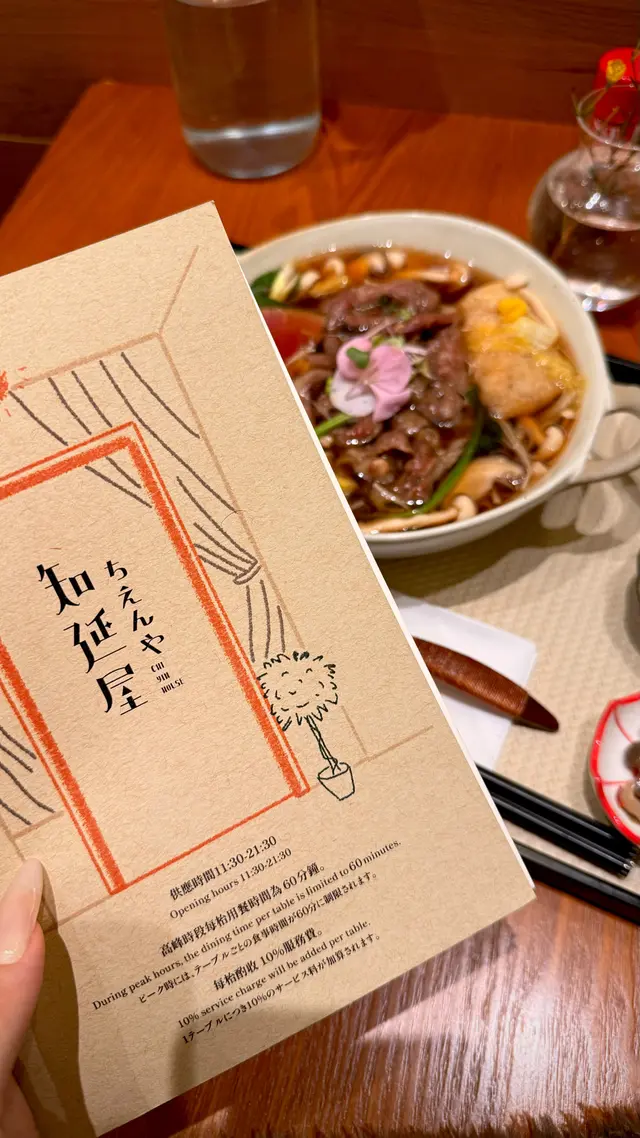 知延屋
ちえんや
CHI
YEN
HOUSE
供應時間11:30-21:30
Opening hours 11:30-21:30
高峰時段每枱用餐時間為 60 分鐘。
During peak hours, the dining time per table is limited to 60 minutes.
ピーク時には、テーブルごとの食事時間が60分に制限されます。
每枱酌收 10% 服務費。
10% service charge will be added per table.
1テーブルにつき10%のサービス料が加算されます。